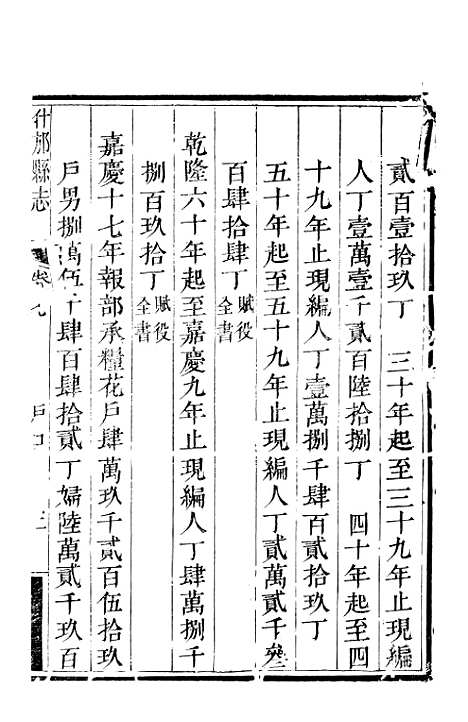 貳百壹拾玖丁　三十年起至三十九年止現編
人丁壹萬壹千貳百陸拾捌丁　四十年起至四
十九年止現編人丁壹萬捌千肆百貳拾玖丁
五十年起至五十九年止現編人丁貳萬貳千叄
百肆拾肆丁賦役全書
乾隆六十年起至嘉慶九年止現編人丁肆萬捌千
捌百玖拾丁賦役全書
嘉慶十七年報部承糧花戶肆萬玖千貳百伍拾玖
戶男捌萬伍千肆百肆拾貳丁婦陸萬貳千玖百
什邡縣志　卷九　戶口　三